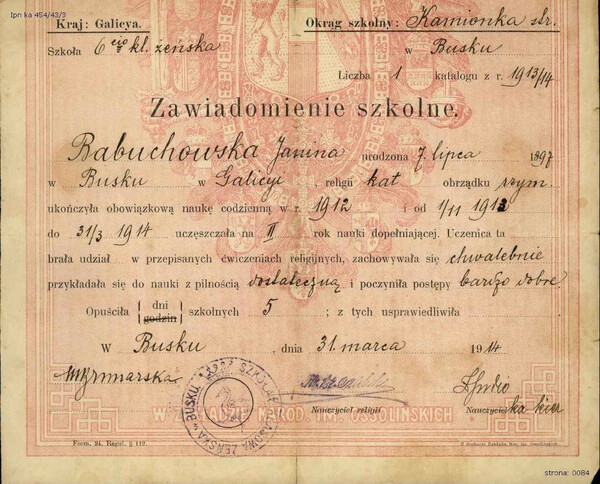 Ipn ka 454/43/3
Kraj: Galicya. Okrąg szkolny: Kamionka str.
Szkoła 6 cio kl. żeńska w Busku
Liczba 1 katalogu z r. 1913/14
Zawiadomienie szkolne.
Babuchowska Janina urodzona 7. lipca 1897
w Busku w Galicyi, religii kat obrządku rzym.
ukończyła obowiązkową naukę codzienną w r. 1912 i od 1/11 1913
do 31/3 1914 uczęszczała na II rok nauki dopełniającej. Uczenica ta
brała udział w przepisanych ćwiczeniach religijnych, zachowywała się chwalebnie
przykładała się do nauki z pilnością dostateczną i poczyniła postępy bardzo dobre
Opuściła dni godzin szkolnych 5; z tych usprawiedliwiła
W Busku, dnia 31. marca 1914
Nauczyciel religii Nauczycielka kier
W ZAKŁADZIE NAROD. IM. OSSOLIŃSKICH
Form. 24. Regul. § 112. Z drukarni Zakładu Nar. im. Ossolińskich
strona: 0084